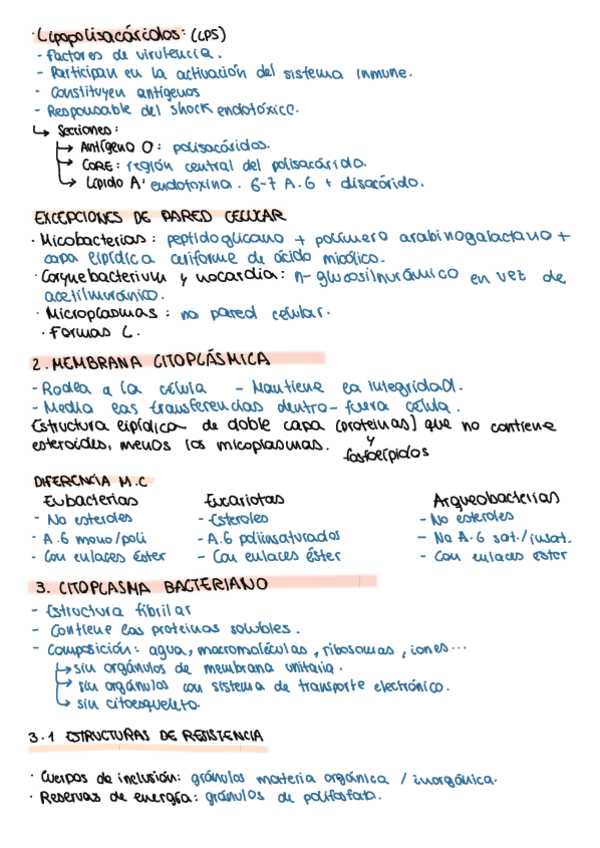 · Lipopolisacáridos: (LPS)
- Factores de virulencia.
- Participan en la activación del sistema inmune.
- Constituyen antígenos
- Responsable del shock endotóxico.
↳ Secciones:
→ Antígeno O: polisacáridos.
→ CORE: región central del polisacárido.
↳ Lípido A: endotoxina. 6-7 A.G + disacárido.
EXCEPCIONES DE PARED CELULAR
· Micobacterias: peptidoglicano + polímero arabinogalactano +
capa lipídica ceriforme de ácido micólico.
· Corynebacterium y nocardia: n-glucosilmurámico en vez de
acetilmuránico.
· Microplasmas: no pared celular.
· Formas L.
2. MEMBRANA CITOPLÁSMICA
- Rodea a la célula - Mantiene la integridad.
- Media las transferencias dentro-fuera célula.
Estructura lipídica de doble capa (proteínas) que no contiene
y
esteroides, menos los micoplasmas. fosfolípidos
DIFERENCIA M.C
Eubacterias Eucariotas Arqueobacterias
- No esteroles - Esteroles - No esteroles
- A.G mono/poli - A.G poliinsaturados - No A.G sat./insat.
- Con enlaces éster - Con enlaces éster - Con enlaces ester
3. CITOPLASMA BACTERIANO
- Estructura fibrilar
- Contiene las proteínas solubles.
- Composición: agua, macromoléculas, ribosomas, iones...
→ sin orgánulos de membrana unitaria.
→ sin orgánulos con sistema de transporte electrónico.
↳ sin citoesqueleto.
3.1 ESTRUCTURAS DE RESISTENCIA
· Cuerpos de inclusión: gránulos materia orgánica / inorgánica.
· Reservas de energía: gránulos de polifosfato.